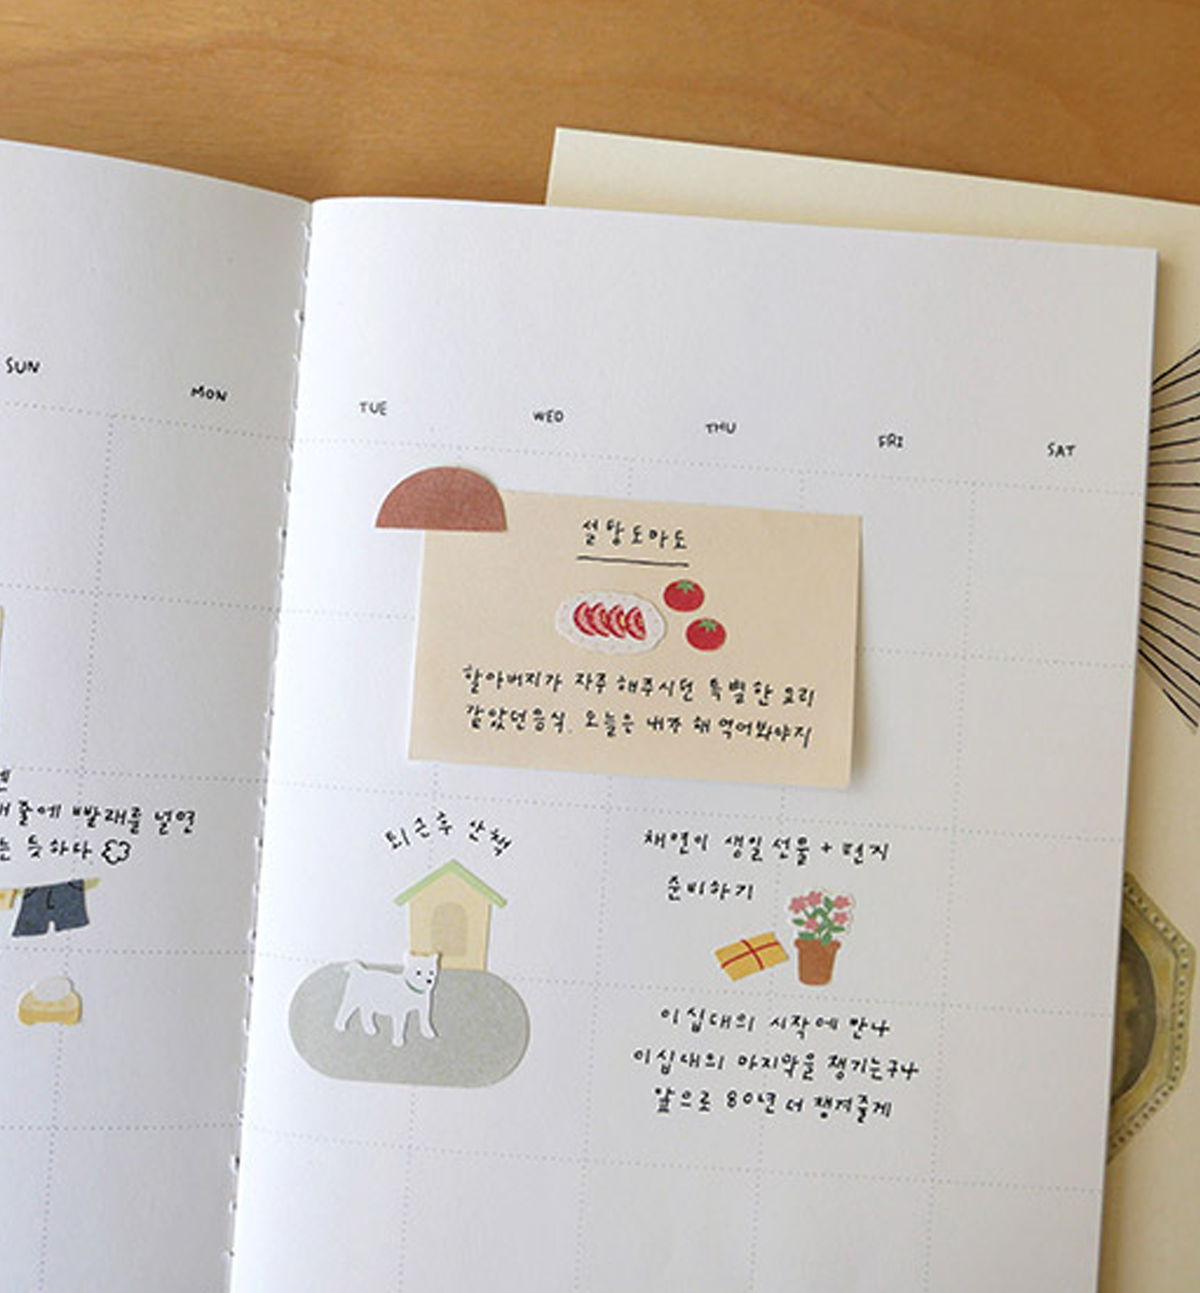 SUN
MON
TUE
WED
THU
FRI
SAT
설탕도마도
할아버지가 자주 해주시던 특별한 요리
같았던음식. 오늘은 내가 해 먹어봐야지
줄에 빨래를 널면
듯하다
퇴근후 산책
채연이 생일 선물 + 편지
준비하기
이십대의 시작에 만나
이십대의 마지막을 챙기는구나
앞으로 80년 더 챙겨줄게